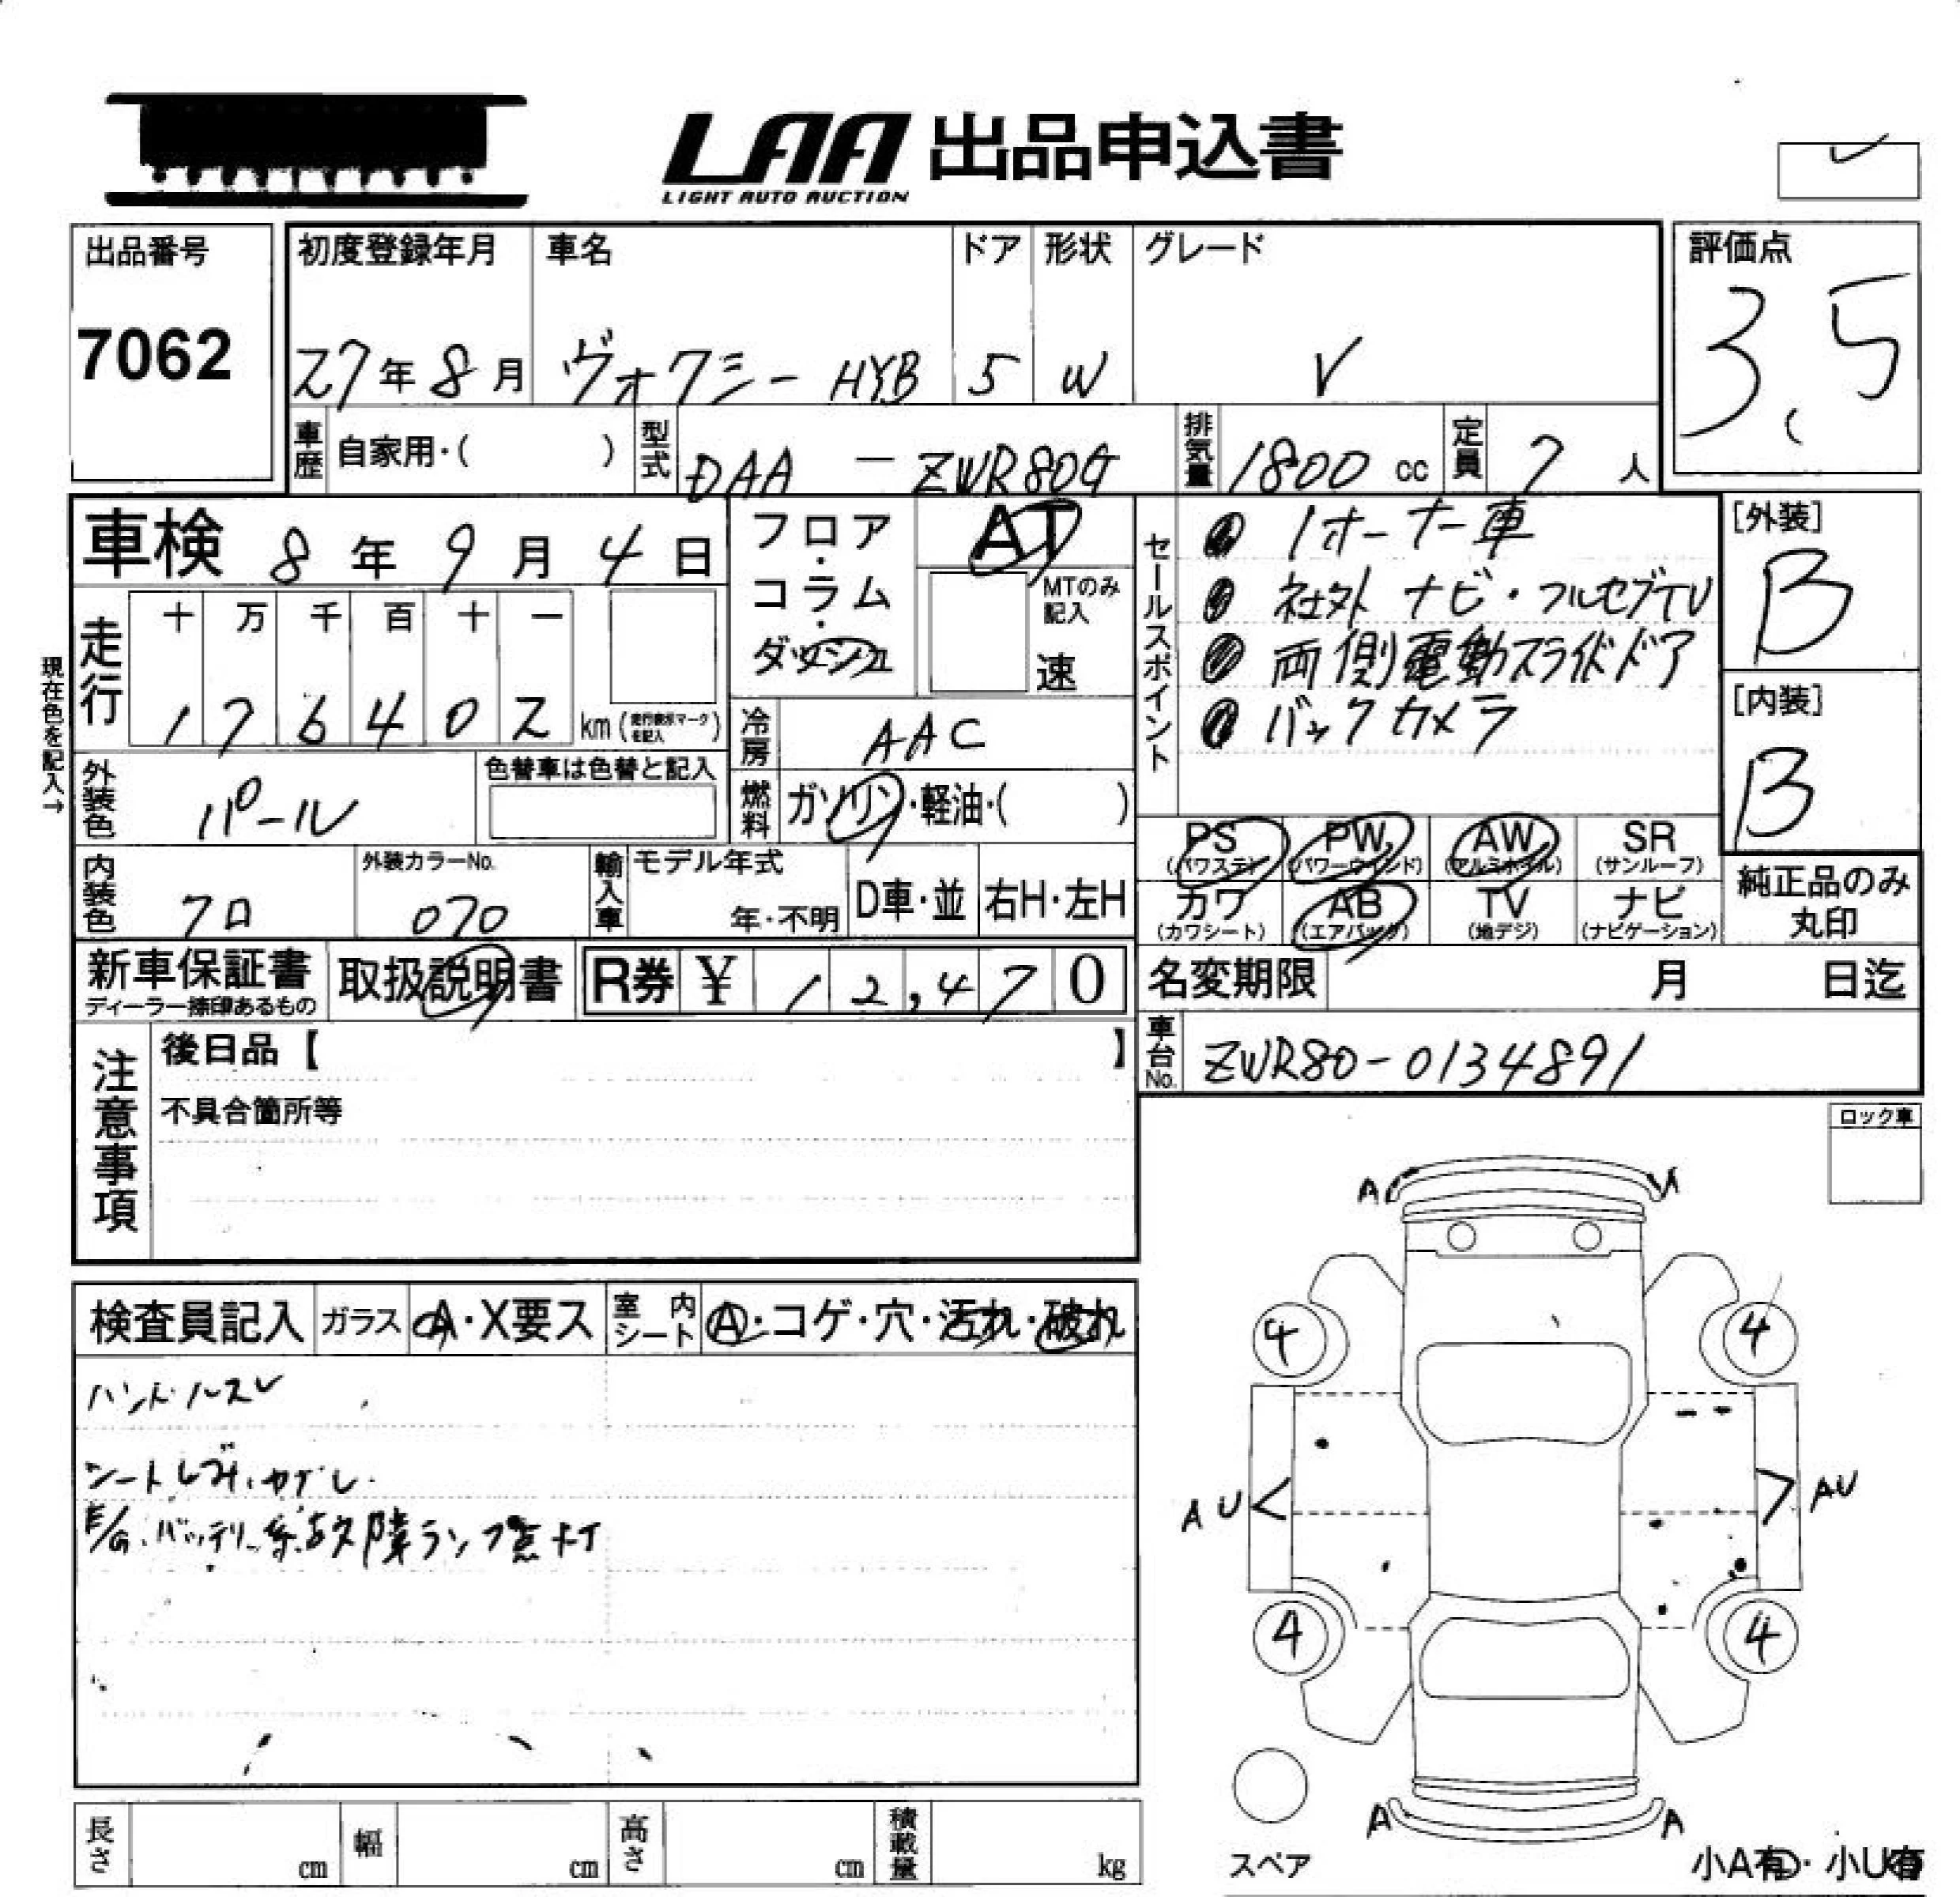 LAA 出品申込書
LIGHT AUTO AUCTION
出品番号
7062
初度登録年月
27年8月
車名
ヴォクシー HYB
ドア
5
形状
W
グレード
V
評価点
3.5
車歴 自家用・( )
型式 DAA - ZWR80G
排気量 1800 cc
定員 7 人
車検 8年9月4日
フロア・コラム・ダッシュ
AT
MTのみ記入
速
セールスポイント
1オーナー車
社外ナビ・フルセグTV
両側電動スライドドア
バックカメラ
[外装]
B
[内装]
B
現在色を記入→
走行
十 万 千 百 十 一
1 7 6 4 0 2 km (走行表示マークを記入)
冷房 AAC
外装色 パール
色替車は色替と記入
燃料 ガソリン・軽油・( )
PS (パワステ)
PW (パワーウィンド)
AW (アルミホイル)
SR (サンルーフ)
カワ (カワシート)
AB (エアバック)
TV (地デジ)
ナビ (ナビゲーション)
純正品のみ丸印
内装色 クロ
外装カラーNo. 070
輸入車
モデル年式
年・不明
D車・並
右H・左H
新車保証書
ディーラー捺印あるもの
取扱説明書
R券 ¥ 12,470
名変期限 月 日迄
車台No. ZWR80-0134891
注意事項
後日品【 】
不具合箇所等
ロック車
検査員記入
ガラス A・X要ス
室内シート A・コゲ・穴・汚れ・破れ
ハンドルスレ
シートシミ、
E/G、バッテリー系故障ランプ点灯
A
4 4
AU AU
4 4
A A
スペア
小A有・小U有
長さ cm
幅 cm
高さ cm
積載量 kg